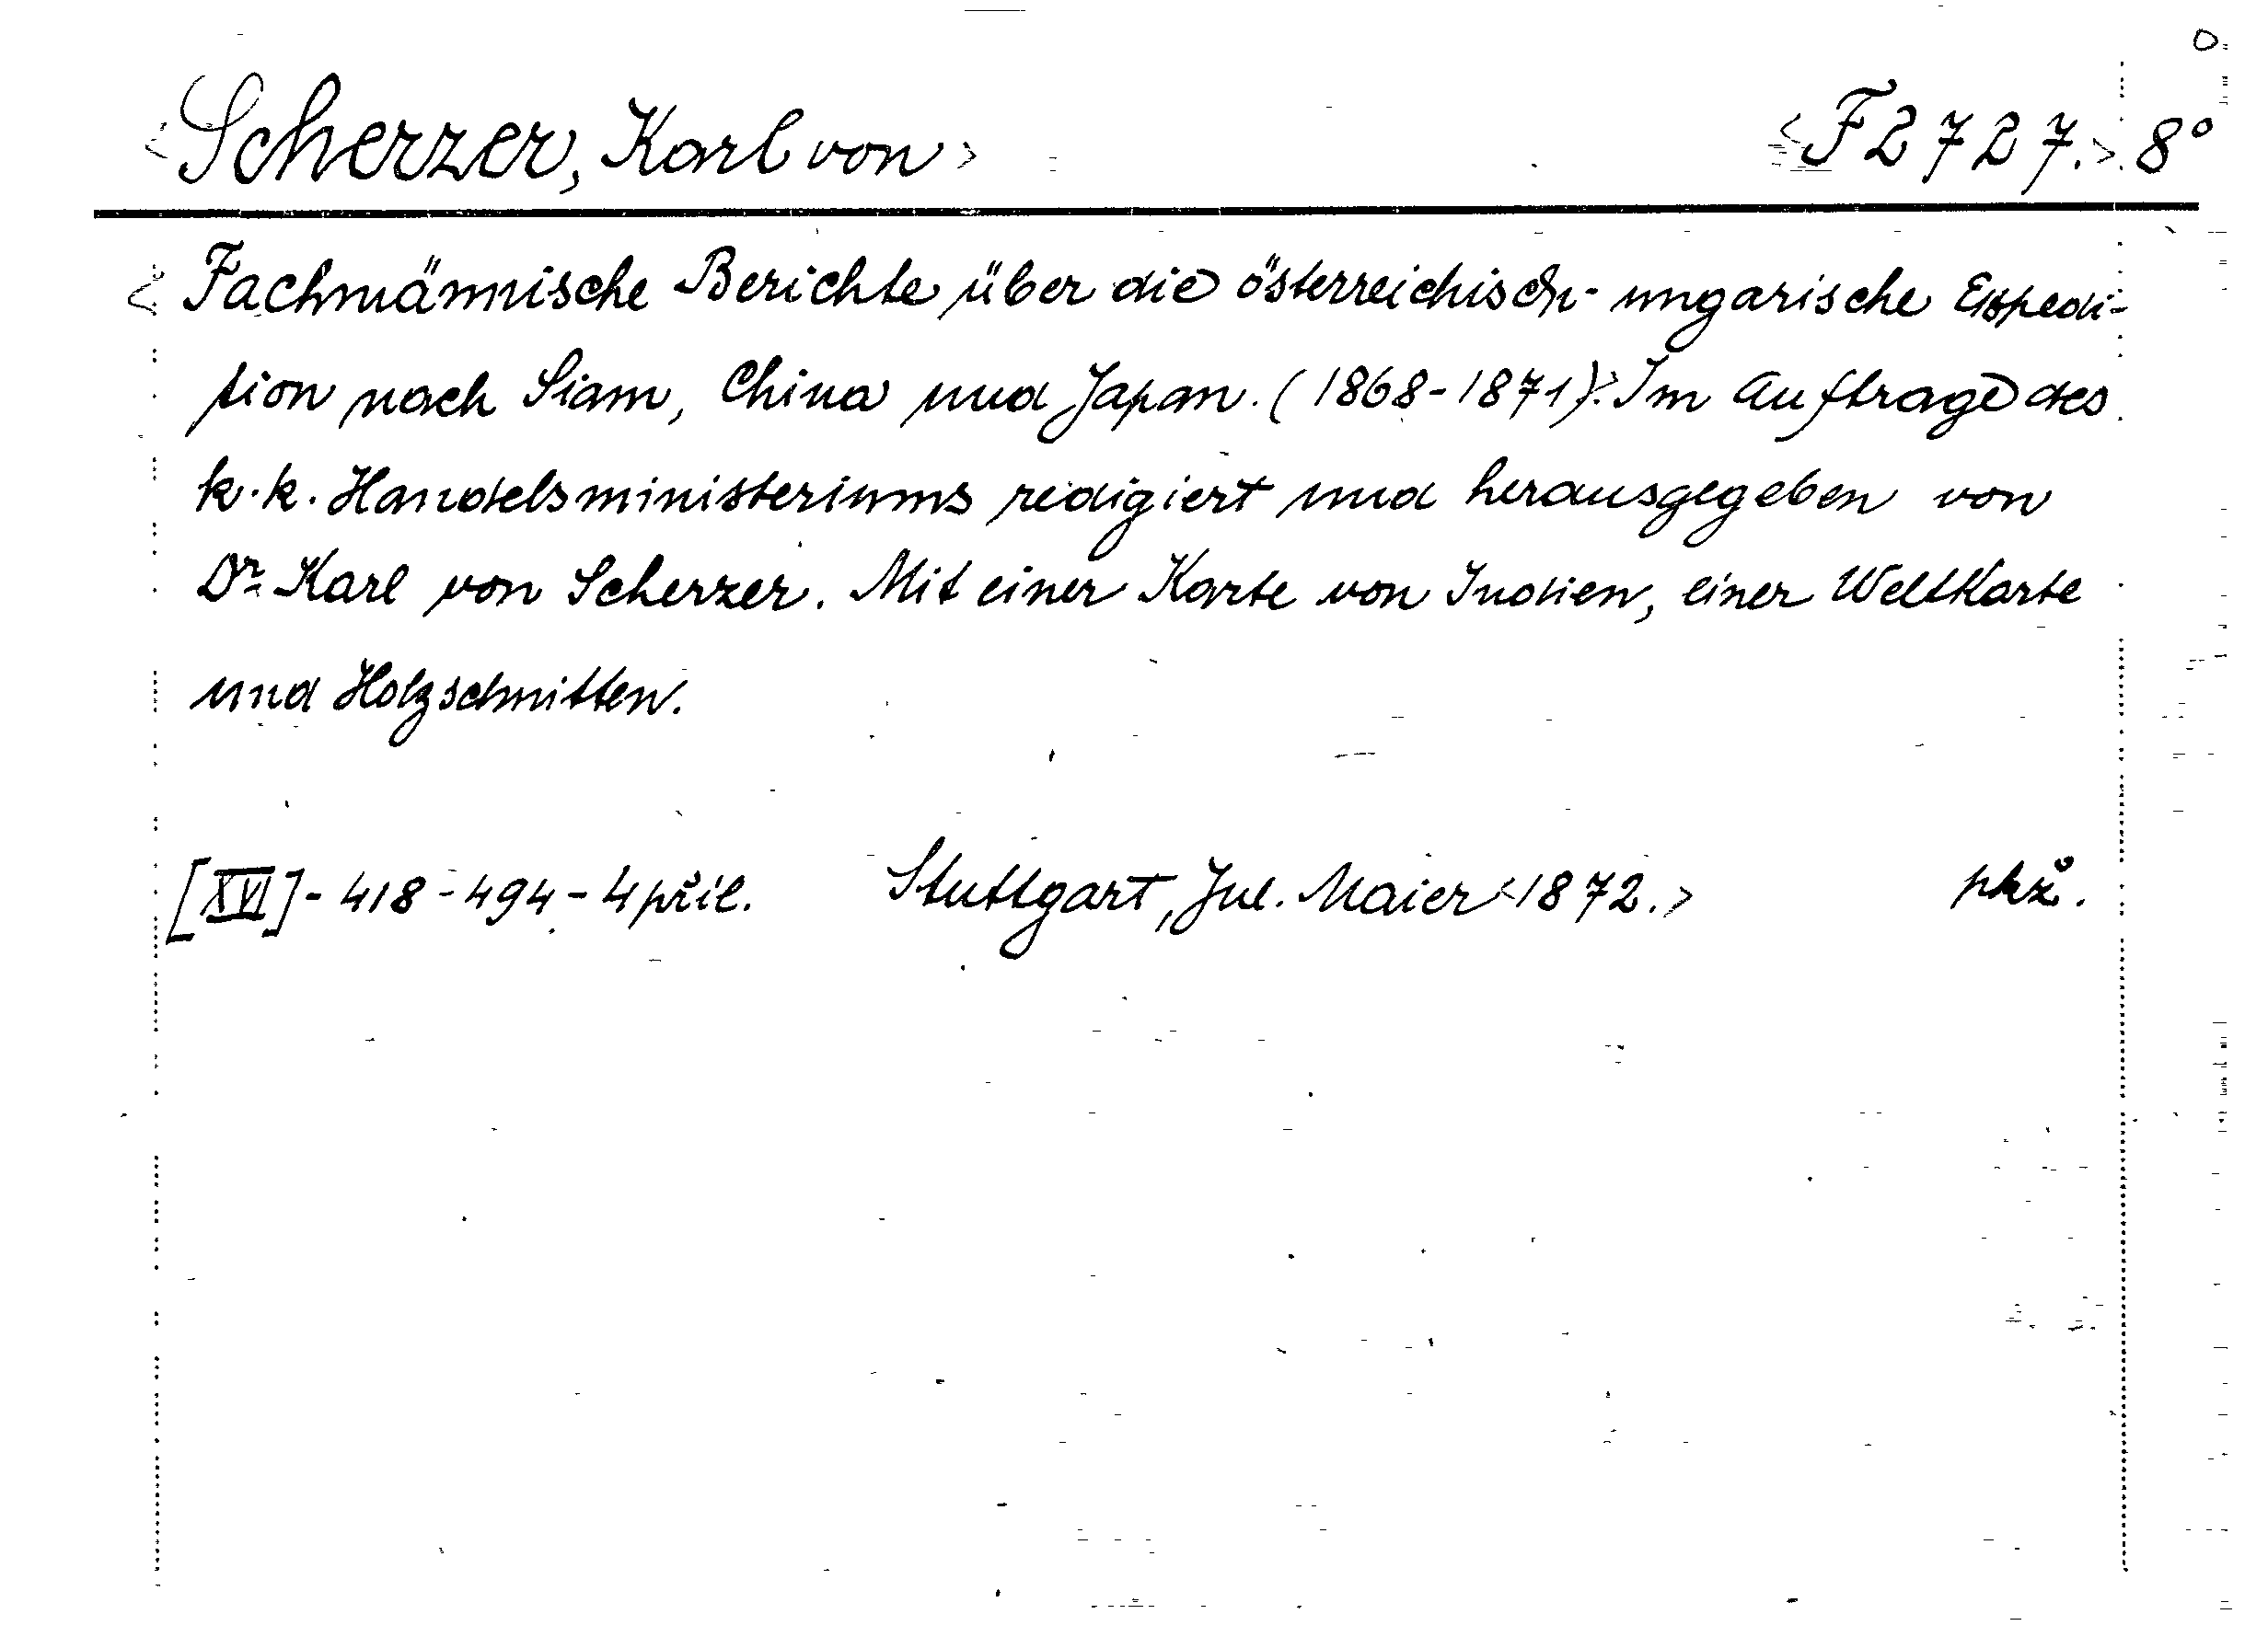 <Scherzer, Karl von> <F 2727.> 8°
<Fachmännische Berichte über die österreichisch-ungarische Expedi-
tion nach Siam, China und Japan. (1868-1871).> Im Auftrage des
k. k. Handelsministeriums redigiert und herausgegeben von
Dr. Karl von Scherzer. Mit einer Karte von Indien, einer Weltkarte
und Holzschnitten.
[XVI] - 418 - 494 - 4 příl. Stuttgart, Jul. Maier <1872.> pkž.